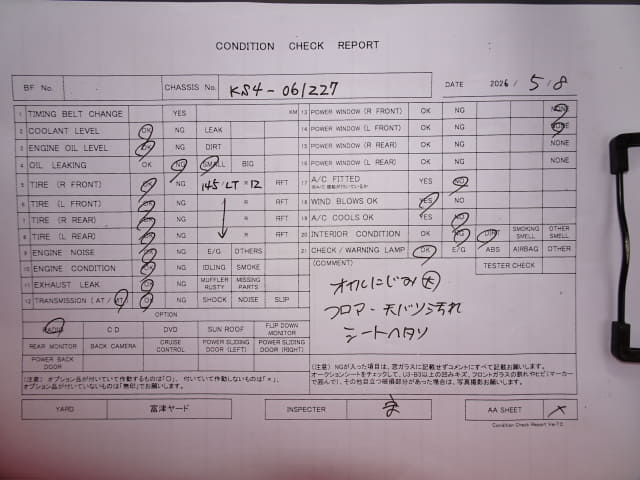 CONDITION CHECK REPORT
BF No. CHASSIS No. KS4-061227 DATE 2026 / 5 / 8
1 TIMING BELT CHANGE YES KM
2 COOLANT LEVEL OK NG LEAK
3 ENGINE OIL LEVEL OK NG DIRT
4 OIL LEAKING OK NG SMALL BIG
5 TIRE (R FRONT) OK NG 145/LT R 12 RFT
6 TIRE (L FRONT) OK NG R RFT
7 TIRE (R REAR) OK NG R RFT
8 TIRE (L REAR) OK NG R RFT
9 ENGINE NOISE OK NG E/G OTHERS
10 ENGINE CONDITION OK NG IDLING SMOKE
11 EXHAUST LEAK OK NG MUFFLER RUSTY MISSING PARTS
12 TRANSMISSION (AT / MT) OK NG SHOCK NOISE SLIP
OPTION
RADIO CD DVD SUN ROOF FLIP DOWN MONITOR
REAR MONITOR BACK CAMERA CRUISE CONTROL POWER SLIDING DOOR (LEFT) POWER SLIDING DOOR (RIGHT)
POWER BACK DOOR
(注意) オプション品が付いていて作動するものは「○」、付いていて作動しないものは「×」、
オプション品が付いていないものは「無印」でお願いします。
13 POWER WINDOW (R FRONT) OK NG NONE
14 POWER WINDOW (L FRONT) OK NG NONE
15 POWER WINDOW (R REAR) OK NG NONE
16 POWER WINDOW (L REAR) OK NG NONE
17 A/C FITTED YES NO
18 WIND BLOWS OK YES NO
19 A/C COOLS OK YES NO
20 INTERIOR CONDITION OK NG DIRT SMOKING SMELL OTHER SMELL
21 CHECK / WARNING LAMP OK E/G ABS AIRBAG OTHER
(COMMENT) TESTER CHECK
オイルにじみ大
フロマ-天バリ汚れ
シートヘタリ
(注意) NGが入った項目は、窓ガラスに記載せずコメントにすべて記載お願いします。
オークションシートをチェックして、U3・B3以上の凹みキズ、フロントガラスの割れやヒビ(マーカー
で囲んで)、その他目立つ破損部分があった場合は、写真撮影お願いします。
YARD 富津ヤード INSPECTER AA SHEET ×
Condition Check Report Ver7.0